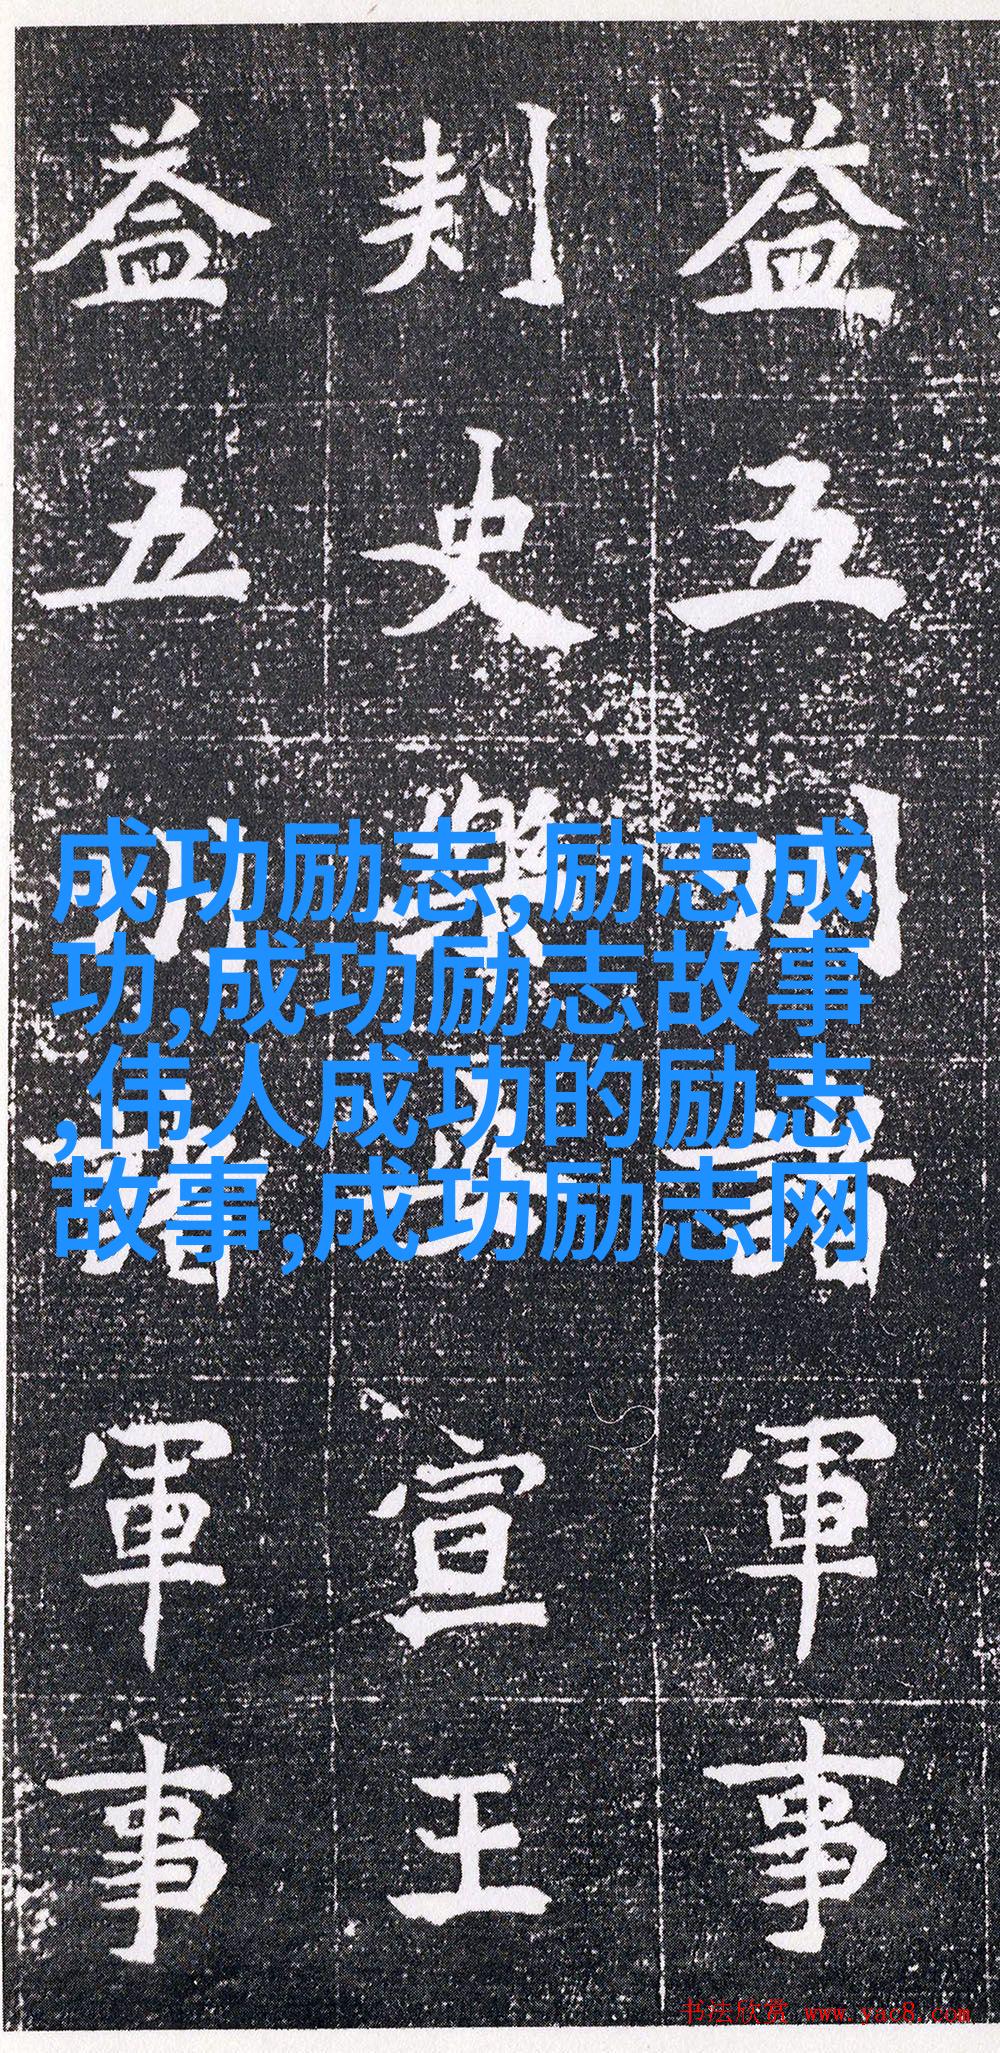 益五州諸軍事
刾史樂安宣王
益五州諸軍事
成功励志,励志成
功,成功励志故事
,伟人成功的励志
故事,成功励志网
书法欣赏 www.yac8.com